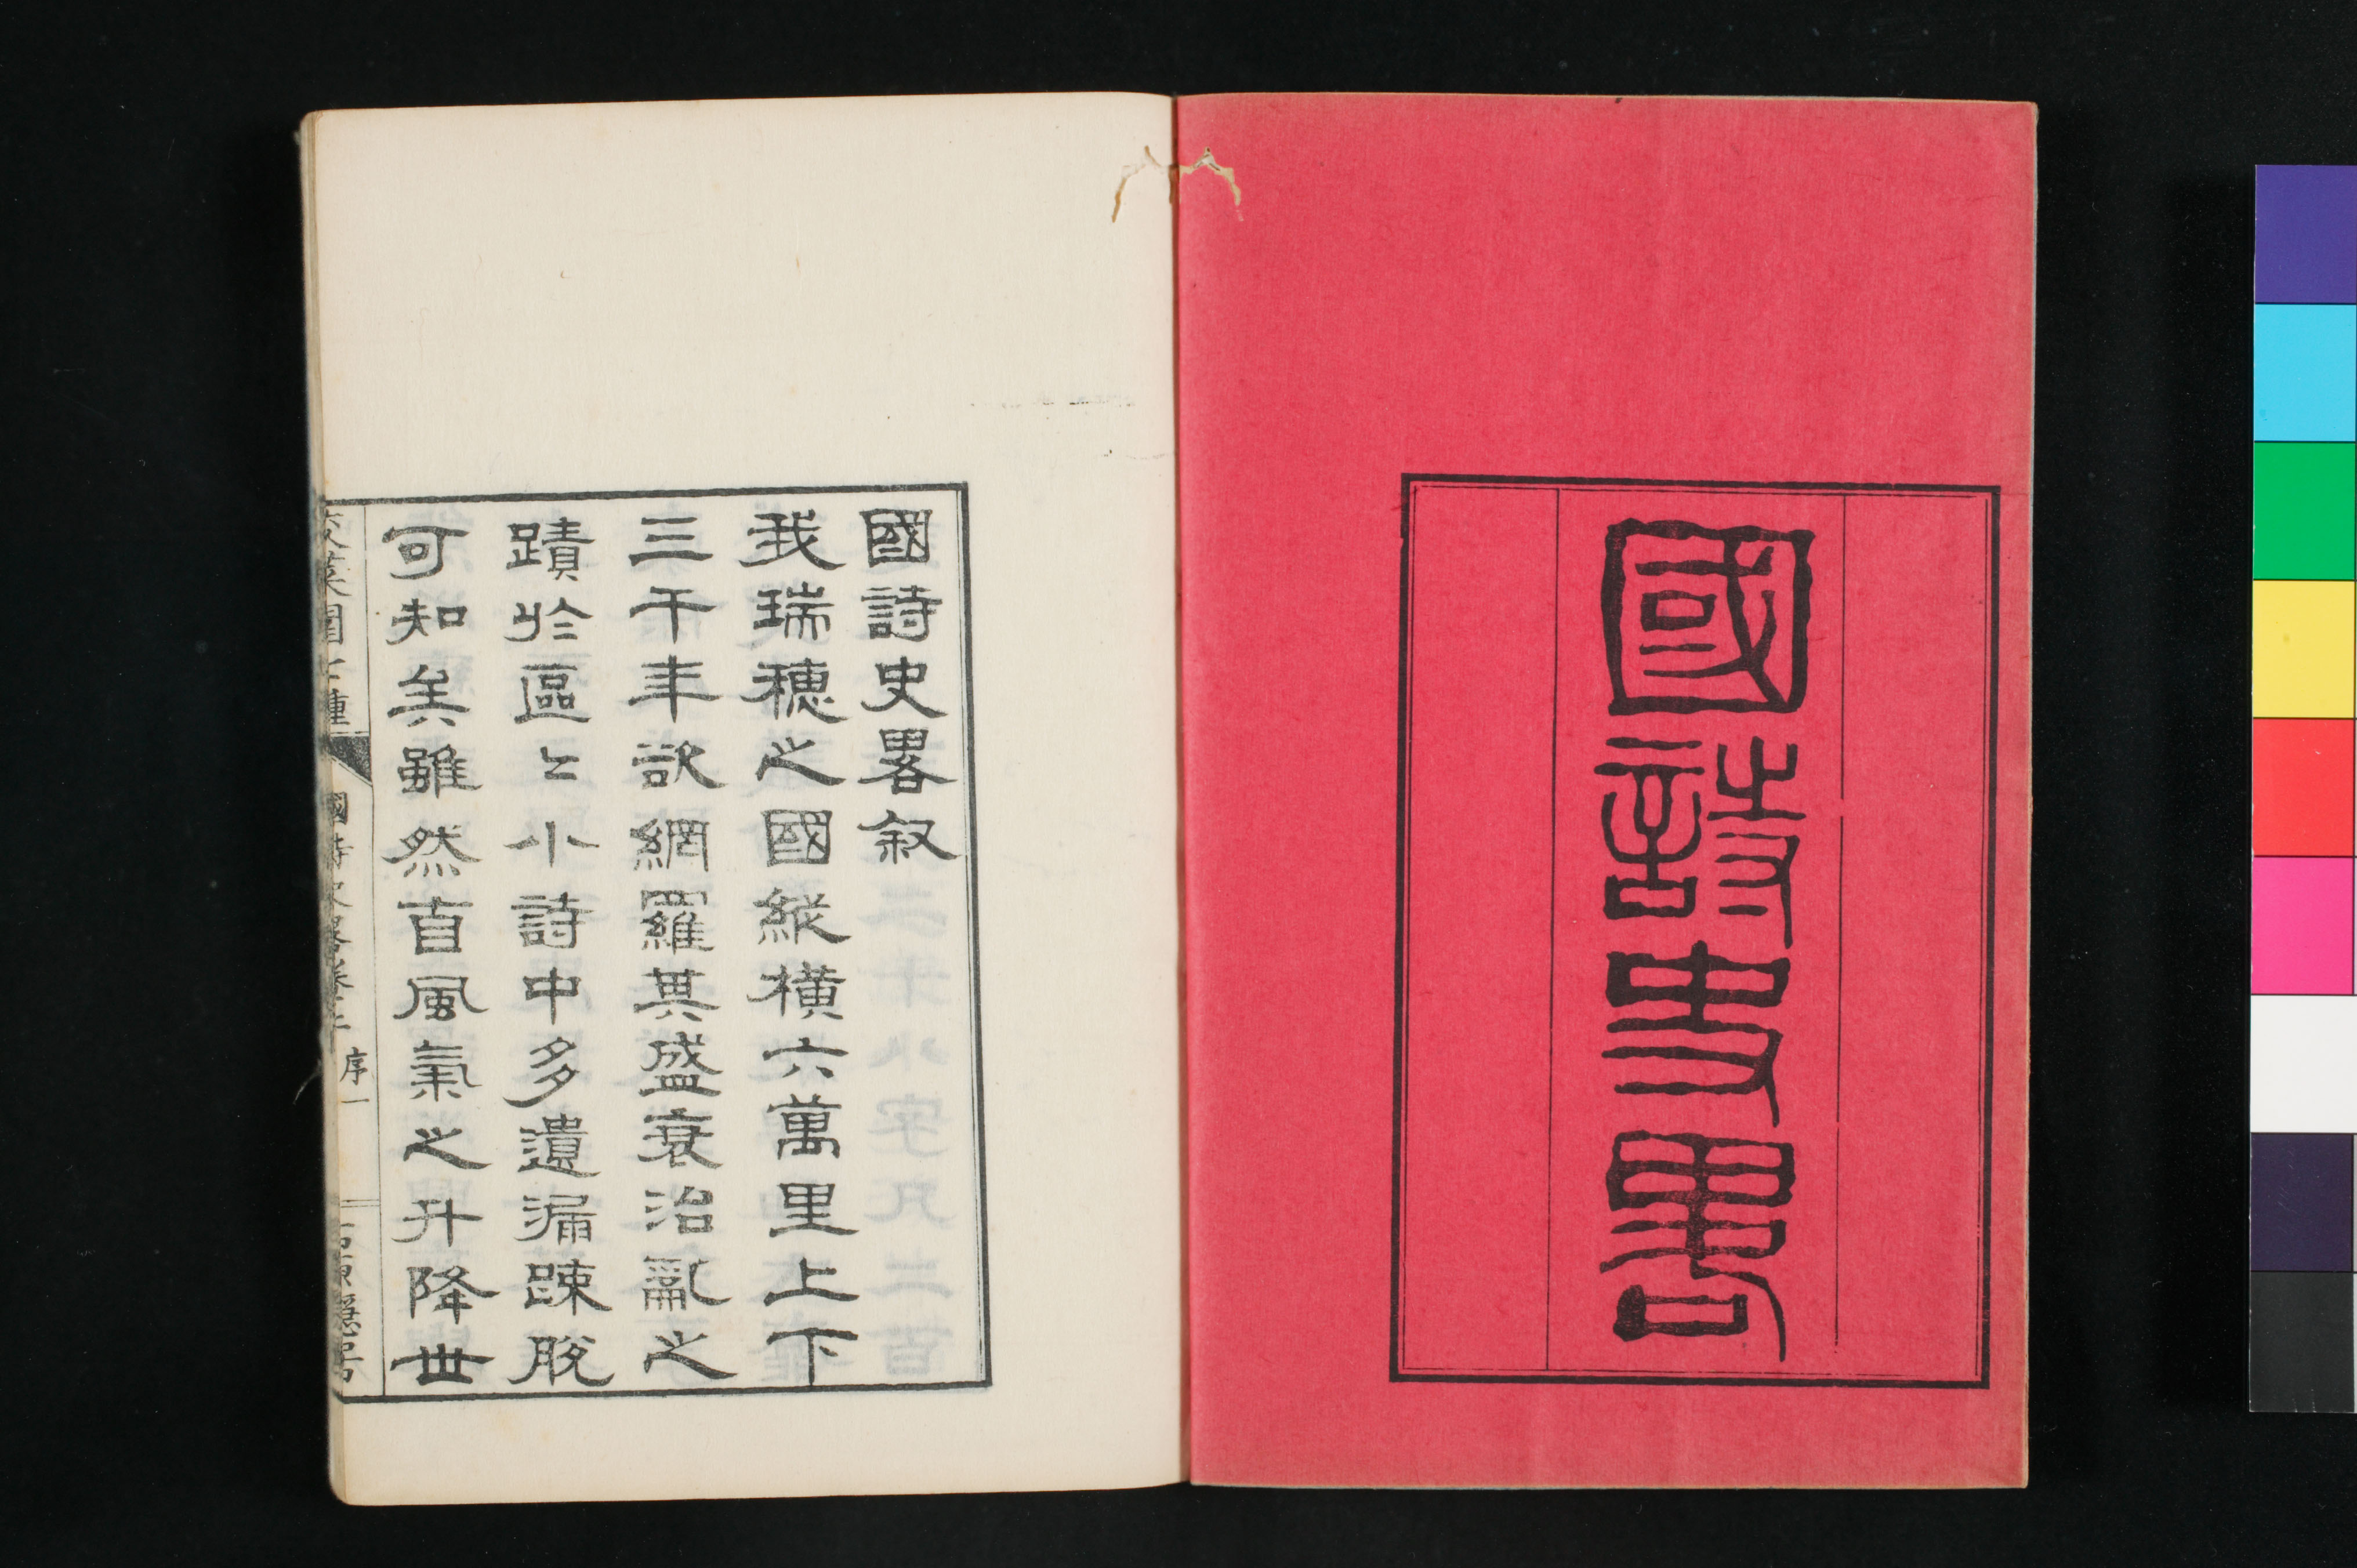 國詩史畧
國詩史畧叙
我瑞穗之國縱橫六萬里上下
三千年欲網羅其盛衰治亂之
蹟於區〻小詩中多遺漏踈脫
可知矣雖然自風氣之升降世
國詩史畧
序一